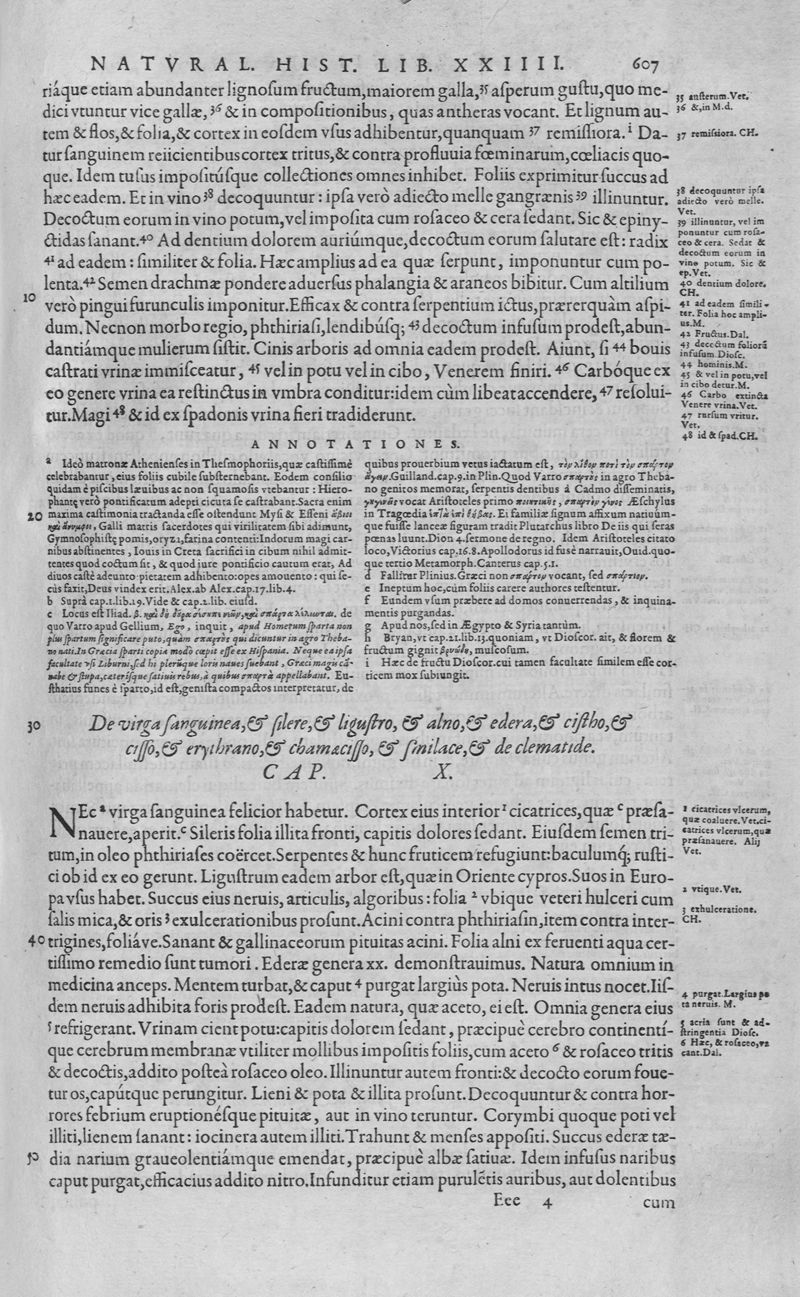 NATVRAL. HIST. LIB. XXIIII. 607
riáque etiam abundanter lignosum fructum,maiorem galla,³⁵ asperum gustu,quo me-
dici vtuntur vice gallæ, ³⁶ & in compositionibus, quas antheras vocant. Et lignum au-
tem & flos,& folia,& cortex in eosdem vsus adhibentur,quanquam ³⁷ remissiora.ⁱ Da-
tur sanguinem reiicientibus cortex tritus,& contra profluuia fœminarum,cœliacis quo-
que. Idem tusus impositúsque collectiones omnes inhibet. Foliis exprimitur succus ad
hæc eadem. Et in vino³⁸ decoquuntur : ipsa verò adiecto melle gangrænis³⁹ illinuntur.
Decoctum eorum in vino potum,vel imposita cum rosaceo & cera sedant. Sic & epiny-
ctidas sanant.⁴⁰ Ad dentium dolorem auriúmque,decoctum eorum salutare est: radix
⁴¹ ad eadem : similiter & folia. Hæc amplius ad ea quæ serpunt, imponuntur cum po-
lenta.⁴² Semen drachmæ pondere aduersus phalangia & araneos bibitur. Cum altilium
10 verò pingui furunculis imponitur.Efficax & contra serpentium ictus,prærerquàm aspi-
dum. Necnon morbo regio, phthiriasi,lendibúsq; ⁴³ decoctum infusum prodest,abun-
dantiámque mulierum sistit. Cinis arboris ad omnia eadem prodest. Aiunt, si ⁴⁴ bouis
castrati vrinæ immisceatur, ⁴⁵ vel in potu vel in cibo, Venerem finiri. ⁴⁶ Carbóque ex
eo genere vrina ea restinctus in vmbra conditur:idem cùm libeat accendere, ⁴⁷ resolui-
tur.Magi ⁴⁸ & id ex spadonis vrina fieri tradiderunt.
35 austerum.Vet.
36 &,in M.d.
37 remissiora. CH.
38 decoquuntur ipsa
adiecto verò melle.
Vet.
39 illinuntur, vel im
ponuntur cum rosa-
ceo & cera. Sedat &
decoctum eorum in
vino potum. Sic &
ep.Vet.
40 dentium dolore.
CH.
41 ad eadem simili-
ter. Folia hoc ampli-
us.M.
42 Fructus.Dal.
43 decoctum foliorū
infusum.Diosc.
44 hominis.M.
45 & vel in potu,vel
in cibo detur.M.
46 Carbo extincta
Venere vrina.Vet.
47 rursum vritur.
Vet.
48 id & spad.CH.
ANNOTATIONES.
a Ideò matronæ Athenienses in Thesmophoriis,quæ castissimè
celebrabantur, eius foliis cubile substernebant. Eodem consilio
quidam è piscibus læuibus ac non squamosis vtebantur : Hiero-
phantę verò pontificatum adepti cicuta se castrabant.Sacra enim
20 maxima castimonia tractanda esse ostendunt Mysi & Esseni ἄβιοι
καὶ ἄνυμφοι, Galli matris sacerdotes qui virilitatem sibi adimunt,
Gymnosophistę pomis,oryza,farina contenti:Indorum magi car-
nibus abstinentes, Iouis in Creta sacrifici in cibum nihil admit-
tentes quod coctum sit, & quod iure pontificio cautum erat, Ad
diuos castè adeunto·pietatem adhibento:opes amouento : qui se-
cùs faxit,Deus vindex erit.Alex.ab Alex.cap.17.lib.4.
b Suprà cap.1.lib.19.Vide & cap.2.lib. eiusd.
c Locus est Iliad. β. καὶ δὴ δοῦρα σέσηπε νεῶν,καὶ σπάρτα λέλυνται. de
quo Varro apud Gellium, Ego, inquit, apud Homerum sparta non
plus spartum significare puto,quàm σπαρτοὺς qui dicuntur in agro Theba-
no nati.In Græcia sparti copia modò cœpit esse ex Hispania. Neque ea ipsa
facultate vsi Liburni,sed hi plerúque loris naues suebant, Græci magis cā-
nabe & stupa,cæterísque satiuis rebus,à quibus σπαρτὰ appellabant. Eu-
stharius funes è sparto,id est,genista compactos interpretatur, de
quibus prouerbium vetus iactatum est, τὸν λίθον ποτὶ τὸν σπάρτον
ἄγων.Guilland.cap.9.in Plin.Quod Varro σπαρτοὺς in agro Theba-
no genitos memorat, serpentis dentibus à Cadmo disseminatis,
γηγενεῖς vocat Aristoteles primo ποιητικῶν, σπαρτῶν γένος Æschylus
in Tragœdia ἑπτὰ ἐπὶ θήβας. Ei familiæ signum affixum natiuúm-
que fuisse lanceæ figuram tradit Plutarchus libro De iis qui seras
pœnas luunt.Dion 4.sermone de regno. Idem Aristoteles citato
loco,Victorius cap.16.8.Apollodorus id fusè narrauit,Ouid.quo-
que tertio Metamorph.Canterus cap.5.1.
d Fallitur Plinius.Græci non σπάρτον vocant, sed σπάρτιον.
e Ineptum hoc,cùm foliis carere authores testentur.
f Eundem vsum præbere ad domos conuerrendas, & inquina-
mentis purgandas.
g Apud nos,sed in Ægypto & Syria tantùm.
h Bryan,vt cap.21.lib.13.quoniam, vt Dioscor. ait, & florem &
fructum gignit βρυώδη, muscosum.
i Hæc de fructu Dioscor.cui tamen facultate similem esse cor-
ticem mox subiungit.
30 De virga sanguinea,& silere,& ligustro, & alno,& edera,& cistho,&
cisso,& erythrano,& chamæcisso, & smilace,& de clematide.
CAP. X.
NEc ᵃ virga sanguinea felicior habetur. Cortex eius interior¹ cicatrices,quæ ᶜ præsa-
nauere,aperit.ᶜ Sileris folia illita fronti, capitis dolores sedant. Eiusdem semen tri-
tum,in oleo phthiriases coërcet.Serpentes & hunc fruticem refugiunt:baculumq́; rusti-
ci ob id ex eo gerunt. Ligustrum eadem arbor est,quæ in Oriente cypros.Suos in Euro-
pa vsus habet. Succus eius neruis, articulis, algoribus : folia ² vbique veteri hulceri cum
salis mica,& oris ³ exulcerationibus prosunt.Acini contra phthiriasin,item contra inter-
40 trigines,foliáve.Sanant & gallinaceorum pituitas acini. Folia alni ex feruenti aqua cer-
tissimo remedio sunt tumori. Ederæ genera xx. demonstrauimus. Natura omnium in
medicina anceps. Mentem turbat,& caput ⁴ purgat largiùs pota. Neruis intus nocet.Iis-
dem neruis adhibita foris prodest. Eadem natura, quæ aceto, ei est. Omnia genera eius
⁵ refrigerant. Vrinam cient potu:capitis dolorem sedant, præcipuè cerebro continentí-
que cerebrum membranæ vtiliter mollibus impositis foliis,cum aceto ⁶ & rosaceo tritis
& decoctis,addito posteà rosaceo oleo. Illinuntur autem fronti:& decocto eorum foue-
tur os,capútque perungitur. Lieni & pota & illita prosunt.Decoquuntur & contra hor-
rores febrium eruptionésque pituitæ, aut in vino teruntur. Corymbi quoque poti vel
illiti,lienem sanant: iocinera autem illiti.Trahunt & menses appositi. Succus ederæ tæ-
50 dia narium graueolentiámque emendat, præcipuè albæ satiuæ. Idem infusus naribus
caput purgat,efficacius addito nitro.Infunditur etiam purulétis auribus, aut dolentibus
Eee 4 cum
1 cicatrices vlcerum,
quæ coaluere.Vet.ci-
catrices vlcerum,quæ
præsanauere. Alij
Vet.
2 vtique.Vet.
3 exhulceratione.
CH.
4 purgat.Largius po
ta neruis. M.
5 acria sunt & ad-
stringentia Diosc.
6 Hæc, & rosaceo,va
cant.Dal.